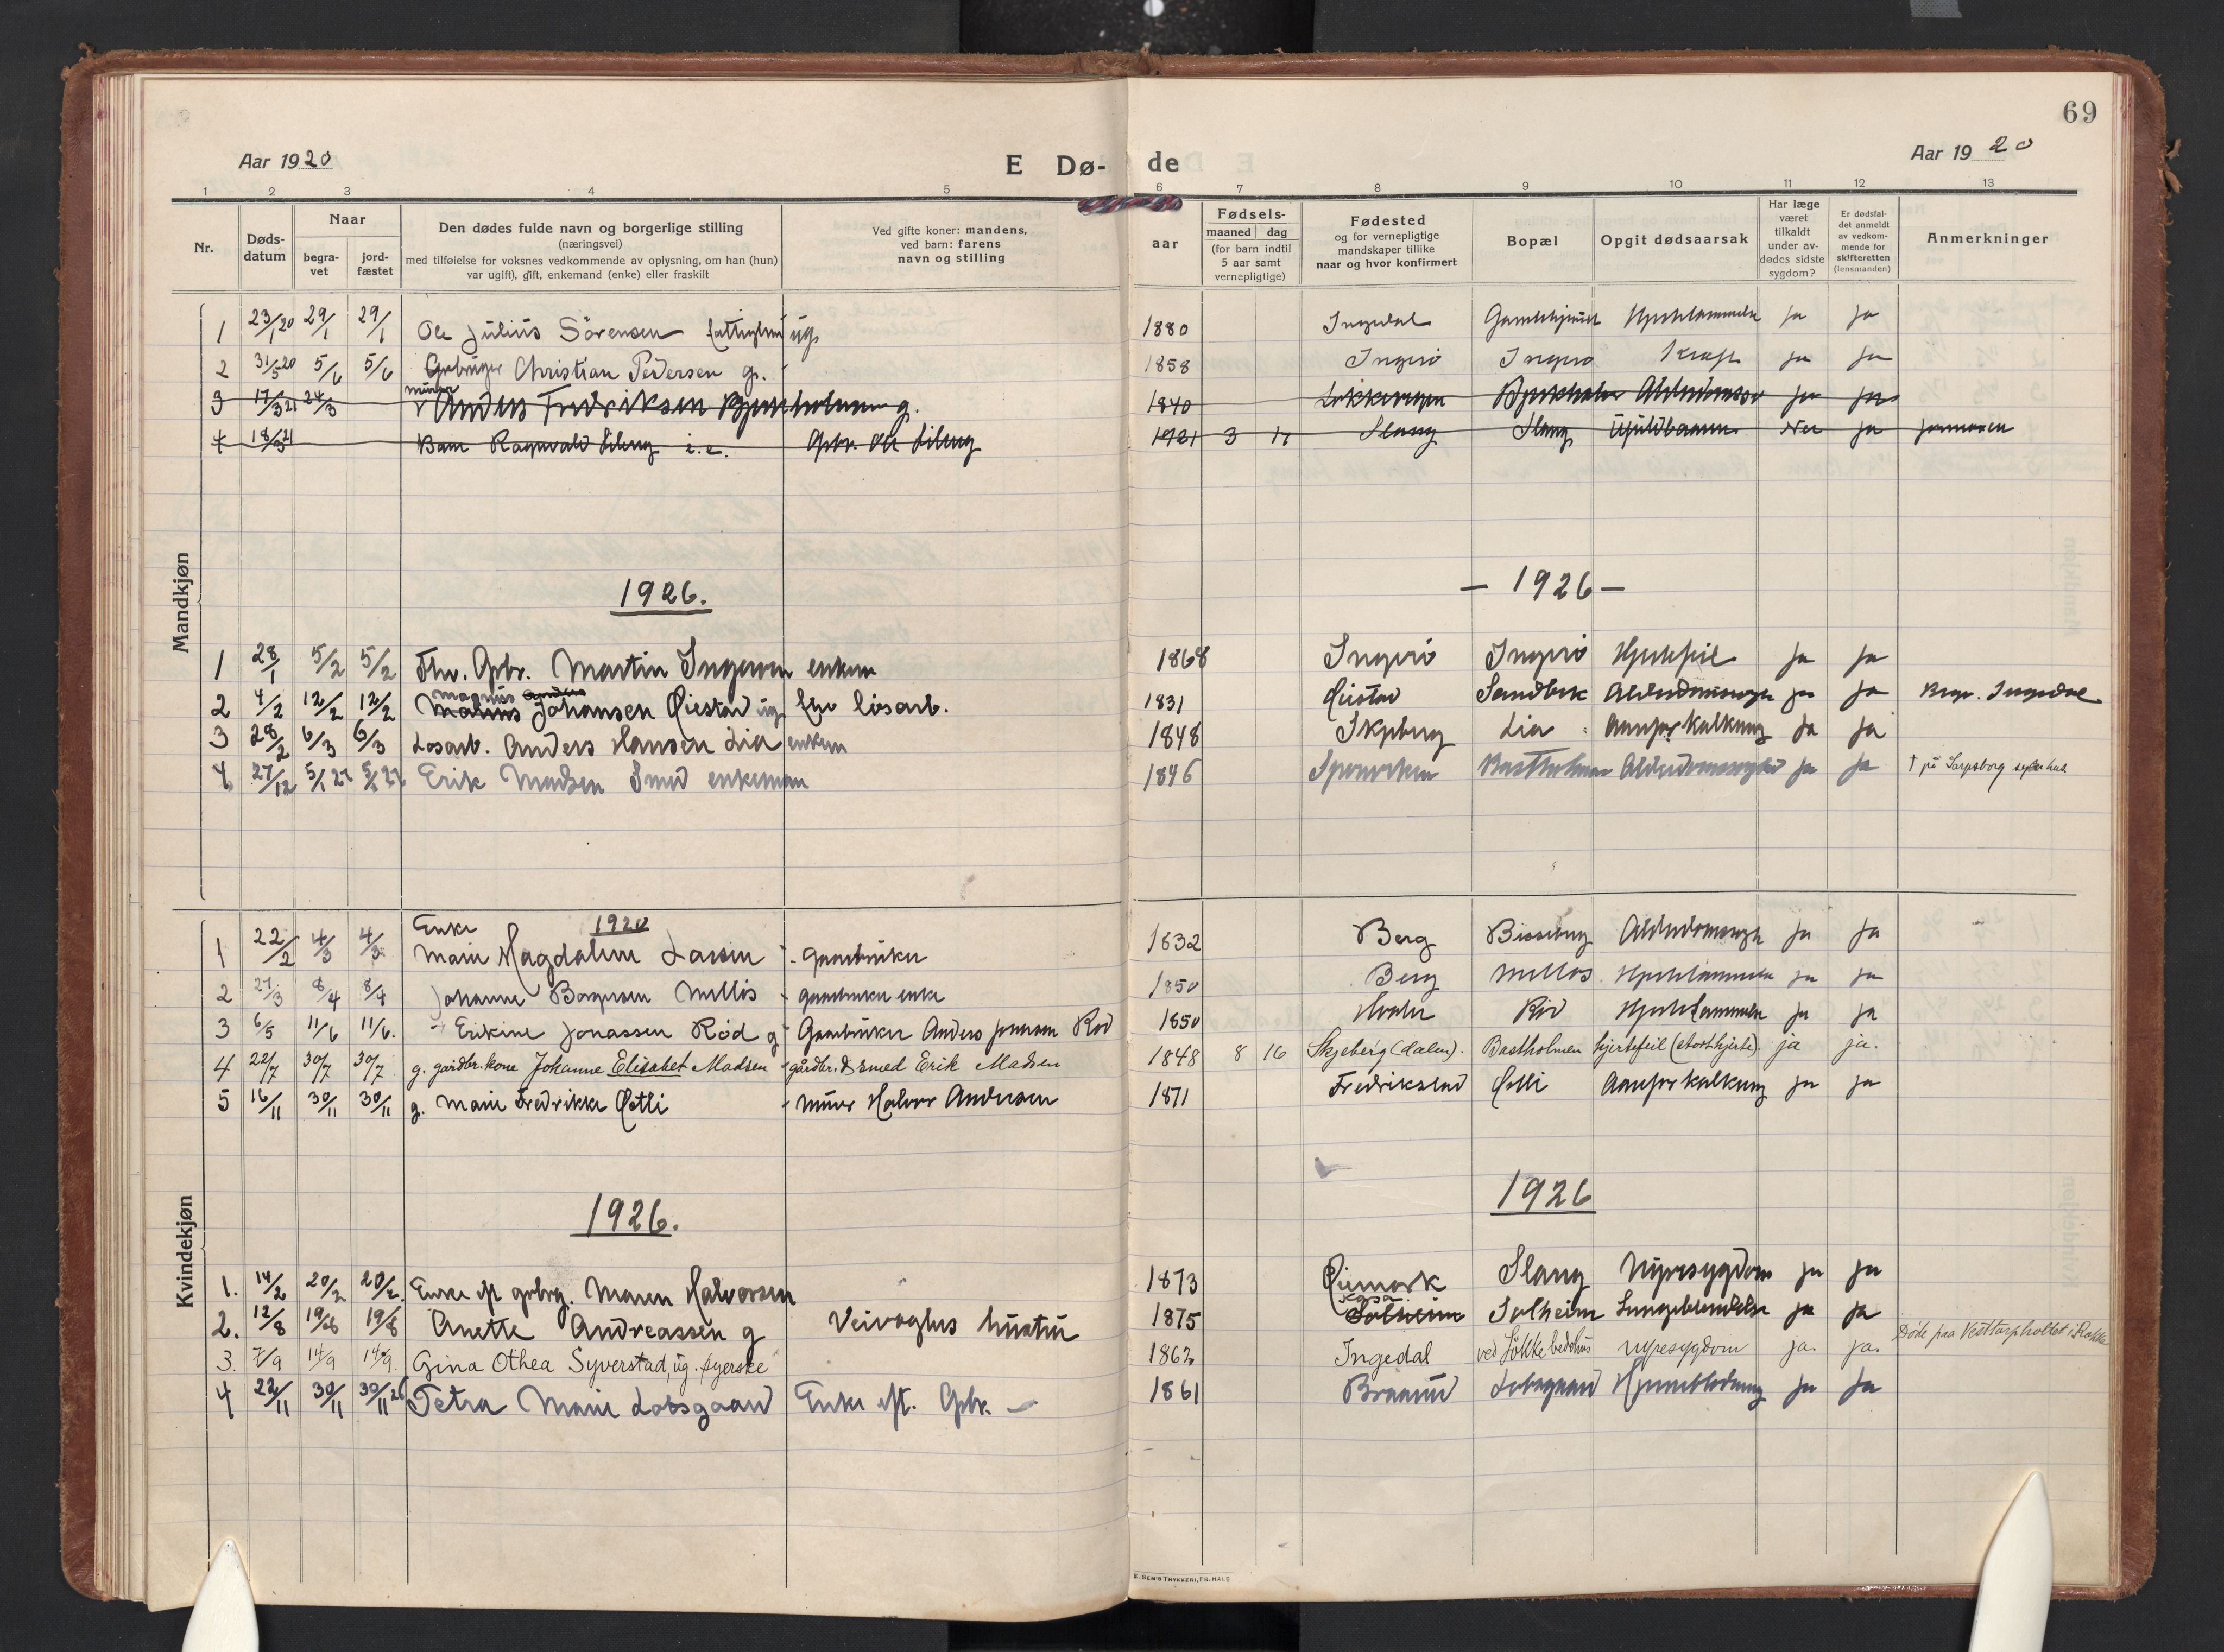 69
Aar 1920 E Dø- de Aar 1920
1 2 3 4 5 6 7 8 9 10 11 12 13
Nr.
Døds-
datum
Naar
begra-
vet
jord-
fæstet
Den dødes fulde navn og borgerlige stilling
(næringsvei)
med tilføielse for voksnes vedkommende av oplysning, om han (hun)
var ugift), gift, enkemand (enke) eller fraskilt
Ved gifte koner: mandens,
ved barn: farens
navn og stilling
aar
Fødsels-
maaned dag
(for barn indtil
5 aar samt
vernepligtige)
Fødested
og for vernepligtige
mandskaper tillike
naar og hvor konfirmert
Bopæl
Opgit dødsaarsak
Har læge
været
tilkaldt
under av-
dødes sidste
sygdom?
Er dødsfal-
det anmeldt
av vedkom-
mende for
skifteretten
(lensmanden)
Anmerkninger
Mandkjøn
1 23/1 20 29/1 29/1 Ole Julius Sørensen ug. 1880 Ingedal Ja Ja
2 31/5 20 5/6 5/6 Grbruger Christian Pedersen g. 1858 Ingerø Ingerø Kræft Ja Ja
murer
3 17/3 21 24/3 Anders Fredriksen g. 1840 Ja Ja
4 18/3 21 Barn Ragnvald Lileng i.e. Gbr. Ole Lileng 1921 3 17 Nei Ja
1926. - 1926 -
1 28/1 5/2 5/2 Fhv. Gbr. Martin Ingerøen enkem 1868 Ingerø Ingerø Hjertefeil Ja Ja
magnus
2 4/2 12/2 12/2 Johansen Øiestad ug. fhv løsarb. 1831 Øiestad Sandbek Ja Ja Begr. Ingedal
3 28/2 6/3 6/3 Løsarb. Anders Hansen Lia enkem 1848 Skjeberg Lia Aareforkalkning Ja Ja
4 27/12 5/1 27 5/1 27 Erik Madsen Smed enkeman 1846 Bastholmen Ja Ja † på Sarpsborg
Enke 1920
1 22/2 4/3 4/3 Marie Magdalene Larsen - Gaardbruker 1832 Berg Ja Ja
2 27/3 8/4 8/4 Johanne Borgersen - gaardbruker enke 1850 Berg Ja Ja
3 6/5 11/6 11/6. Erikine Jonassen Rød g - Gaardbruker Anders Jonassen Rød 1850 Hvaler Rød Ja Ja
4 22/7 30/7 30/7 g. gårdbr. kone Johanne Elisabet Madsen - gårdbr. & smed Erik Madsen 1848 8 16 Skjeberg (Dalen). Bastholmen hjertefeil (stort hjerte). ja ja.
5 16/11 30/11 30/11 g. Marie Fredrikke Østli - murer Halvor Andersen 1871 Fredrikstad Østli Aareforkalkning Ja Ja
Kvindekjøn
1926. 1926
1. 14/2 20/2 20/2. Enke eft grbrg. Maren Halvorsen 1873 Øiemark Slang Nyresygdom Ja Ja
2. 12/8 19/8 19/8 Anette Andreassen g Veivogters hustru 1875 Solheim Solheim Lungebetændelse Ja Ja
3. 7/9 14/9 14/9. Gina Othea Syverstad, ug. syerske 1862 Ingedal ved Løkke bedehus nyresygdom ja. ja. Døde paa Vesttorpholtet i Rokke
4 22/11 30/11 30/11 26 Petra Marie Labsgaard Enke eft. Gbr. 1861 Labsgaard Hjerneblødning Ja Ja
E. SEM'S TRYKKERI, FR.HALD